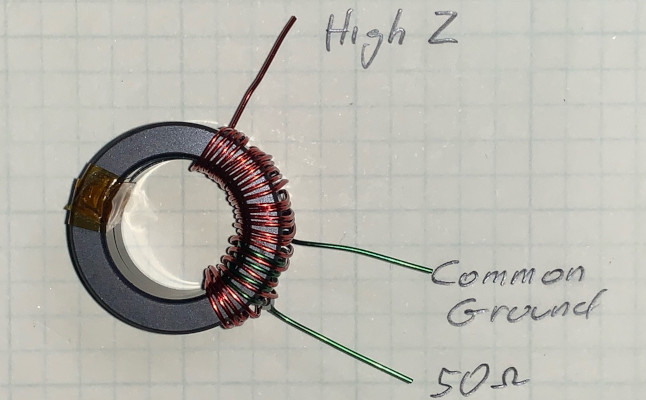 High Z
Common
Ground
50Ω